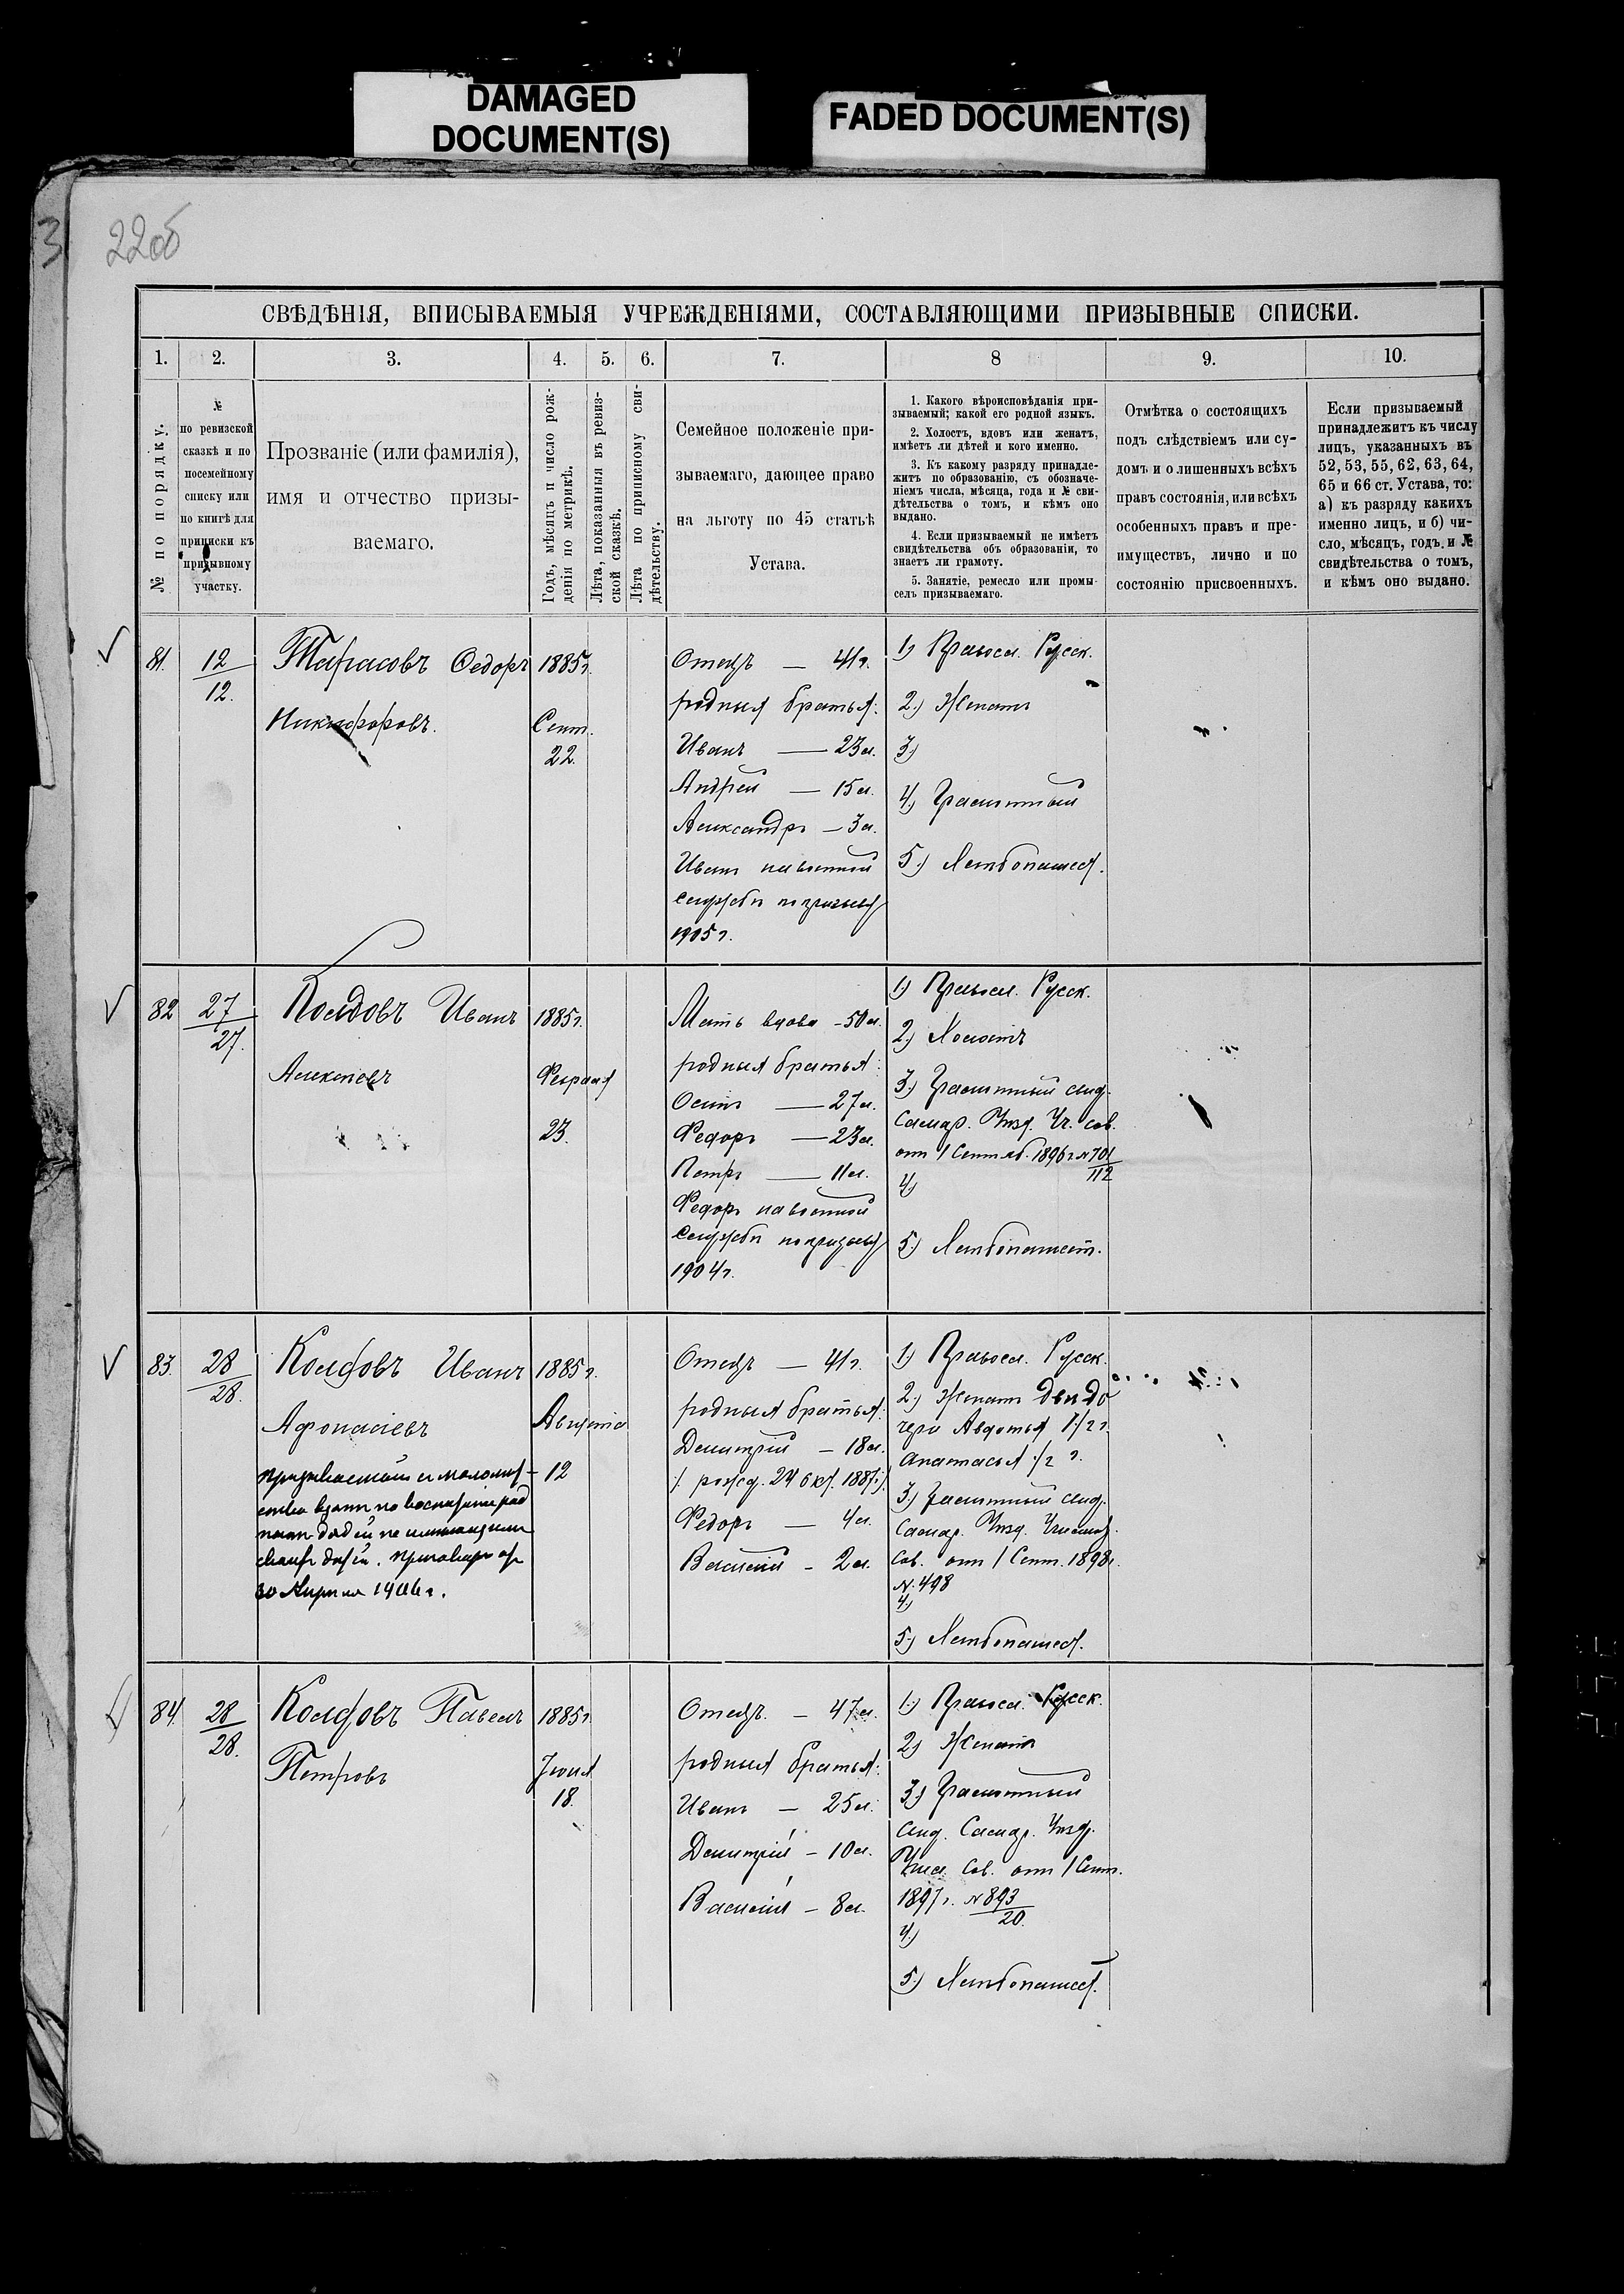 DAMAGED
DOCUMENT(S)
FADED DOCUMENT(S)
3
22об
СВѢДѢНІЯ, ВПИСЫВАЕМЫЯ УЧРЕЖДЕНІЯМИ, СОСТАВЛЯЮЩИМИ ПРИЗЫВНЫЕ СПИСКИ.
1. 2. 3. 4. 5. 6. 7. 8 9. 10.
№ по порядку.
№
по ревизской
сказкѣ и по
посемейному
списку или
по книгѣ для
приписки къ
призывному
участку.
Прозваніе (или фамилія),
имя и отчество призы-
ваемаго.
Годъ, мѣсяцъ и число рож-
денія по метрикѣ.
Лѣта, показанныя въ ревиз-
ской сказкѣ.
Лѣта по приписному сви-
дѣтельству.
Семейное положеніе при-
зываемаго, дающее право
на льготу по 45 статьѣ
Устава.
1. Какого вѣроисповѣданія при-
зываемый; какой его родной языкъ.
2. Холостъ, вдовъ или женатъ,
имѣетъ ли дѣтей и кого именно.
3. Къ какому разряду принадле-
житъ по образованію, съ обозначе-
ніемъ числа, мѣсяца, года и № сви-
дѣтельства о томъ, и кѣмъ оно
выдано.
4. Если призываемый не имѣетъ
свидѣтельства объ образованіи, то
знаетъ ли грамоту.
5. Занятіе, ремесло или промы-
селъ призываемаго.
Отмѣтка о состоящихъ
подъ слѣдствіемъ или су-
домъ и о лишенныхъ всѣхъ
правъ состоянія, или всѣхъ
особенныхъ правъ и пре-
имуществъ, лично и по
состоянію присвоенныхъ.
Если призываемый
принадлежитъ къ числу
лицъ, указанныхъ въ
52, 53, 55, 62, 63, 64,
65 и 66 ст. Устава, то:
а) къ разряду какихъ
именно лицъ, и б) чи-
сло, мѣсяцъ, годъ и №
свидѣтельства о томъ,
и кѣмъ оно выдано.
81.
12
12.
Тарасовъ Ѳедоръ
Никифоровъ.
1885г.
Сент.
22.
Отецъ — 41г.
родныя братья:
Иванъ — 23л.
Андрей — 15л.
Александръ — 3л.
Иванъ на военной
службѣ по призыву
1905г.
1) Правосл. Русск.
2.) Женатъ
3)
4.) Грамотный
5.) Хлѣбопашец.
82
27
27.
Колдовъ Иванъ
Алексѣевъ
1885г.
Февраля
23.
Мать вдова - 50л.
родныя братья:
Осипъ — 27л.
Федоръ — 23л.
Петръ — 11л.
Федоръ на военной
службѣ по призыву
1904г.
1.) Правосл. Русск.
2.) Холостъ
3.) Грамотный свид.
Самар. Уѣзд. Уч. сов.
отъ 1 Сентяб. 1896 г. № 701
112
4)
5.) Хлѣбопашест.
83.
28
28.
Колдовъ Иванъ
Афонасіевъ
1885г.
Августа
12
30 Апрѣля 1906г.
Отецъ — 41г.
родныя братья:
Дмитрій — 18л.
Федоръ — 4л.
Василій - 2л.
1.) Правосл. Русск.
2.) Женатъ двѣ до
чери Авдотья 1 1/2 г.
Анатасья 1/2 г.
3.) Грамотный свид.
Самар. Уѣзд. Училищ.
Сов. отъ 1 Сент. 1898г.
№ 498
4.)
5.) Хлѣбопашец.
84.
28
28.
Колдовъ Павелъ
Петровъ
1885г.
Іюня
18.
Отецъ. — 47л.
родныя братья:
Иванъ — 25л.
Дмитрій — 10л.
Василій — 8л.
1.) Правосл. Русск.
2.) Женатъ
3.) Грамотный
свид. Самар. Уѣзд.
Учил. Сов. отъ 1 Сент.
1897г. № 893
20.
4.)
5.) Хлѣбопашец.